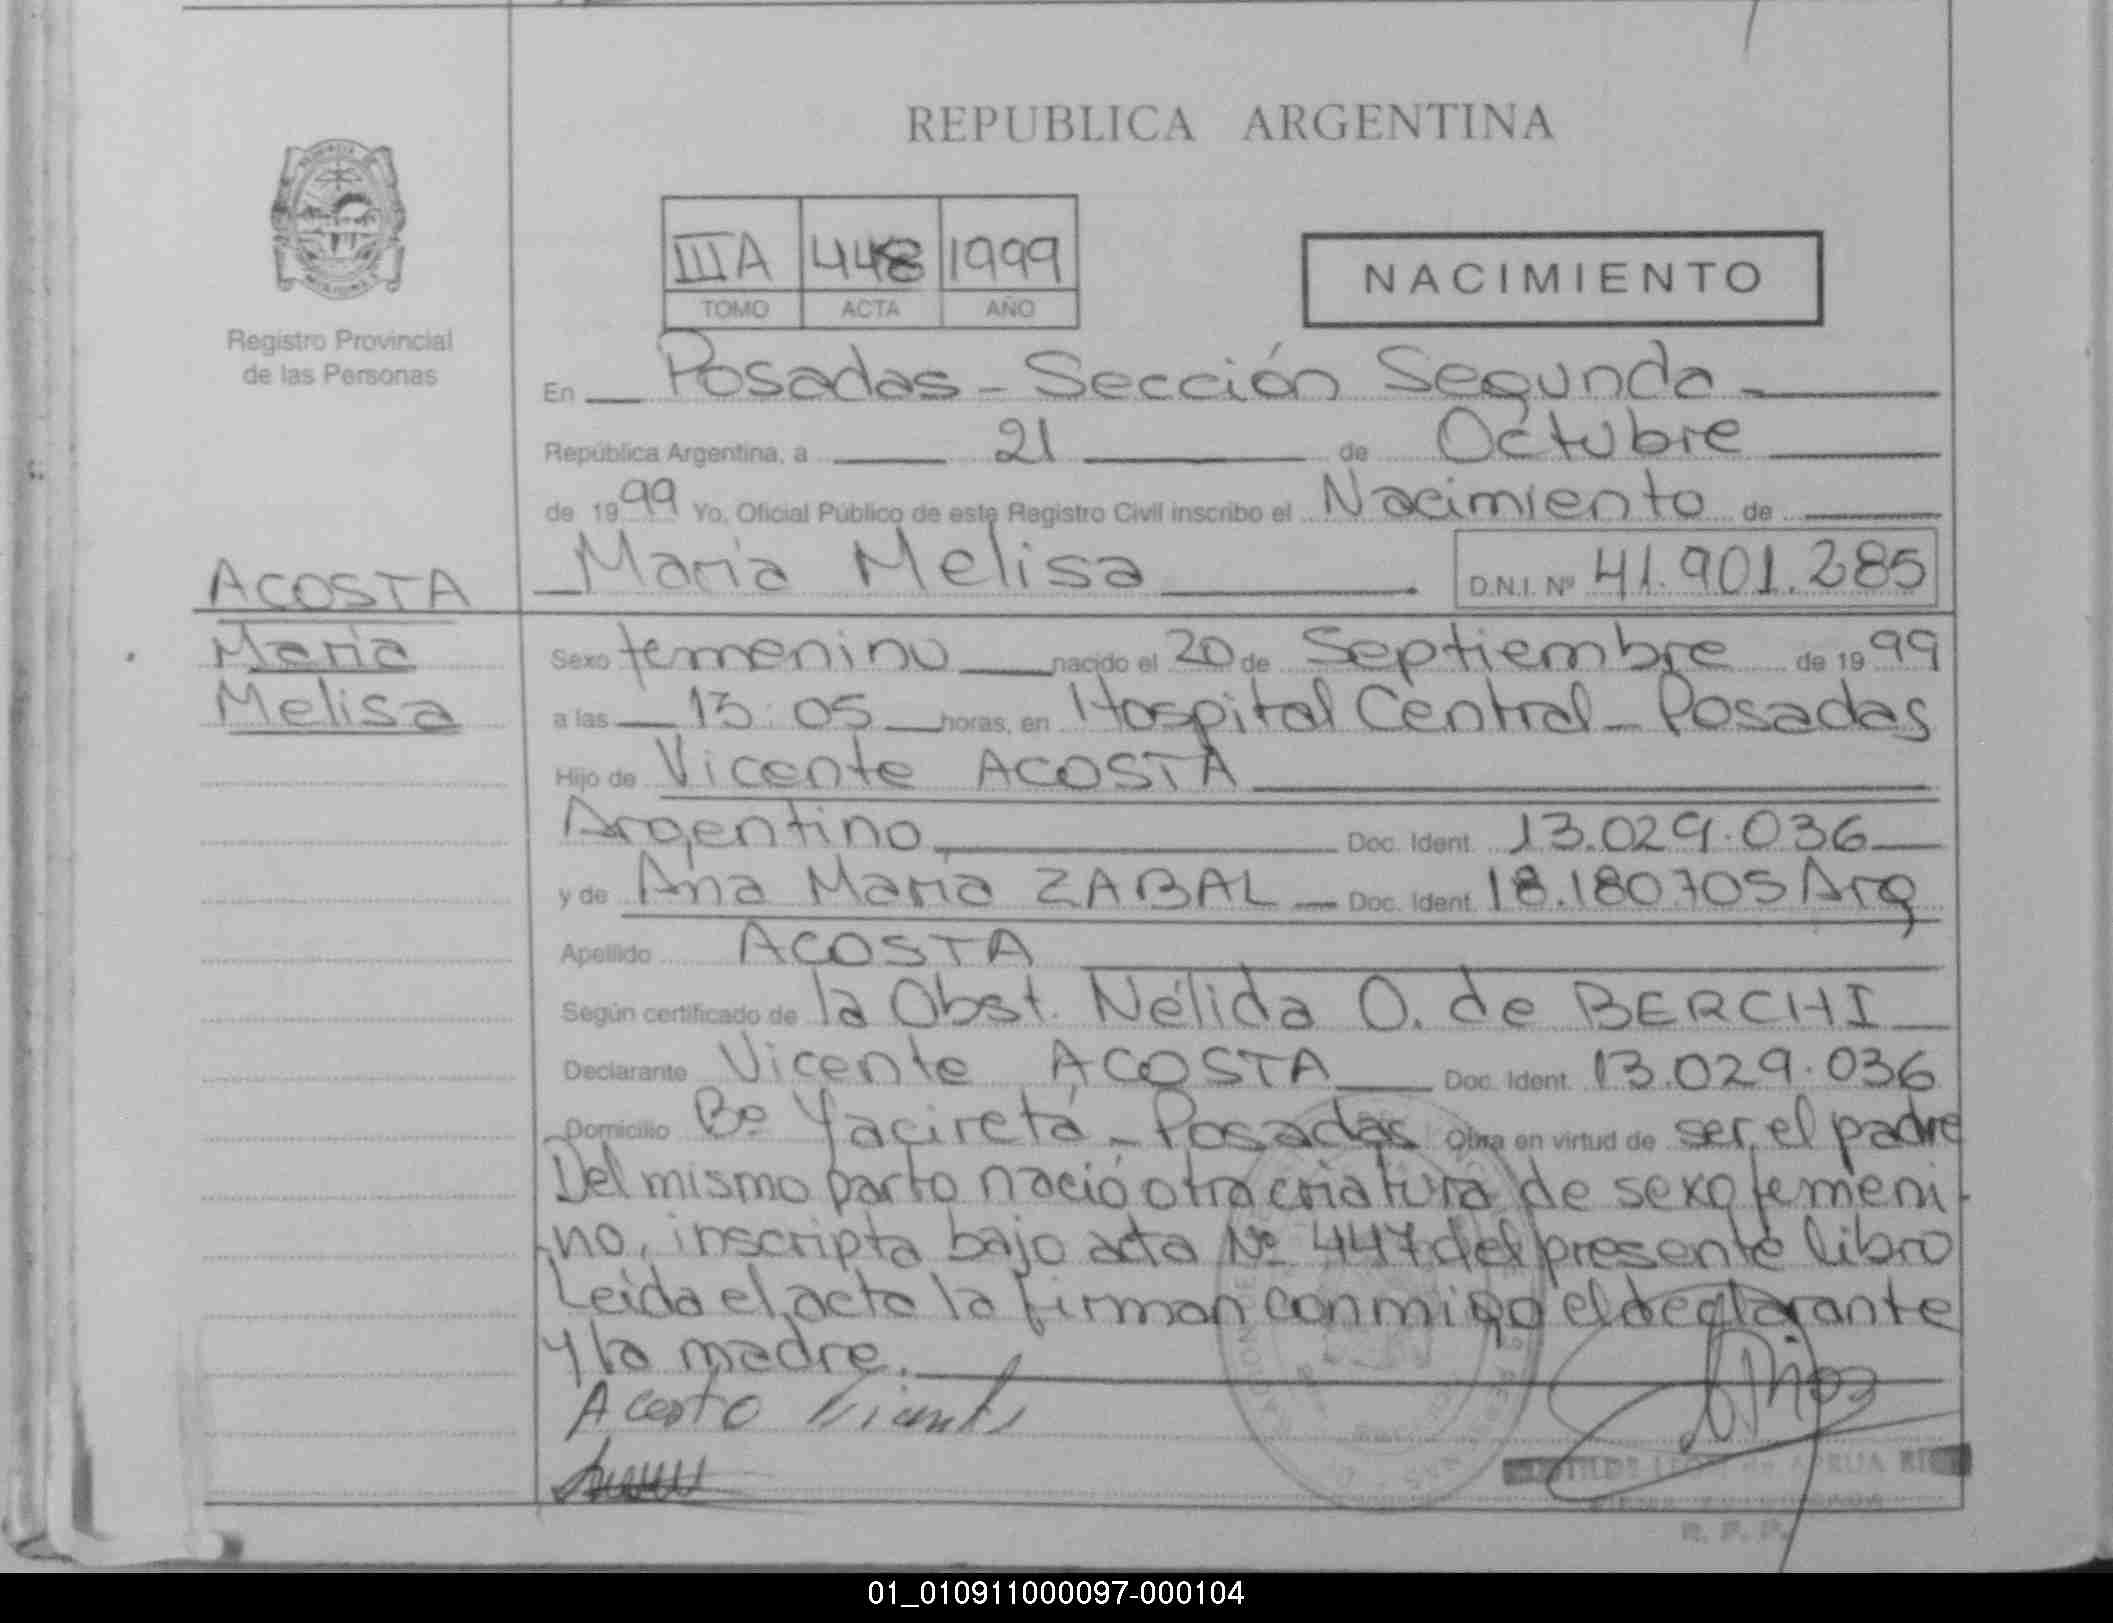 REPUBLICA ARGENTINA
IIIA 448 1999
TOMO ACTA AÑO
NACIMIENTO
Registro Provincial
de las Personas
En Posadas - Sección Segunda
República Argentina, a 21 de Octubre
de 1999 Yo, Oficial Público de este Registro Civil inscribo el Nacimiento de
María Melisa D.N.I. Nº 41.901.285
ACOSTA
María
Melisa
Sexo femenino nacido el 20 de Septiembre de 1999
a las 13:05 horas, en Hospital Central - Posadas
Hijo de Vicente ACOSTA
Argentino Doc. Ident. 13.029.036
y de Ana María ZABAL Doc. Ident. 18.180705 Arg
Apellido ACOSTA
Según certificado de la Obst. Nélida O. de BERCHI
Declarante Vicente ACOSTA Doc. Ident. 13.029.036
Domicilio Bº Yaciretá - Posadas Obra en virtud de ser el padre
Del mismo parto nació otra criatura de sexo femeni
no, inscripta bajo acta Nº 447 del presente libro
Leída el acta la firman conmigo el declarante
y la madre.
Acosta Vicente
R. P. P.
01_010911000097-000104